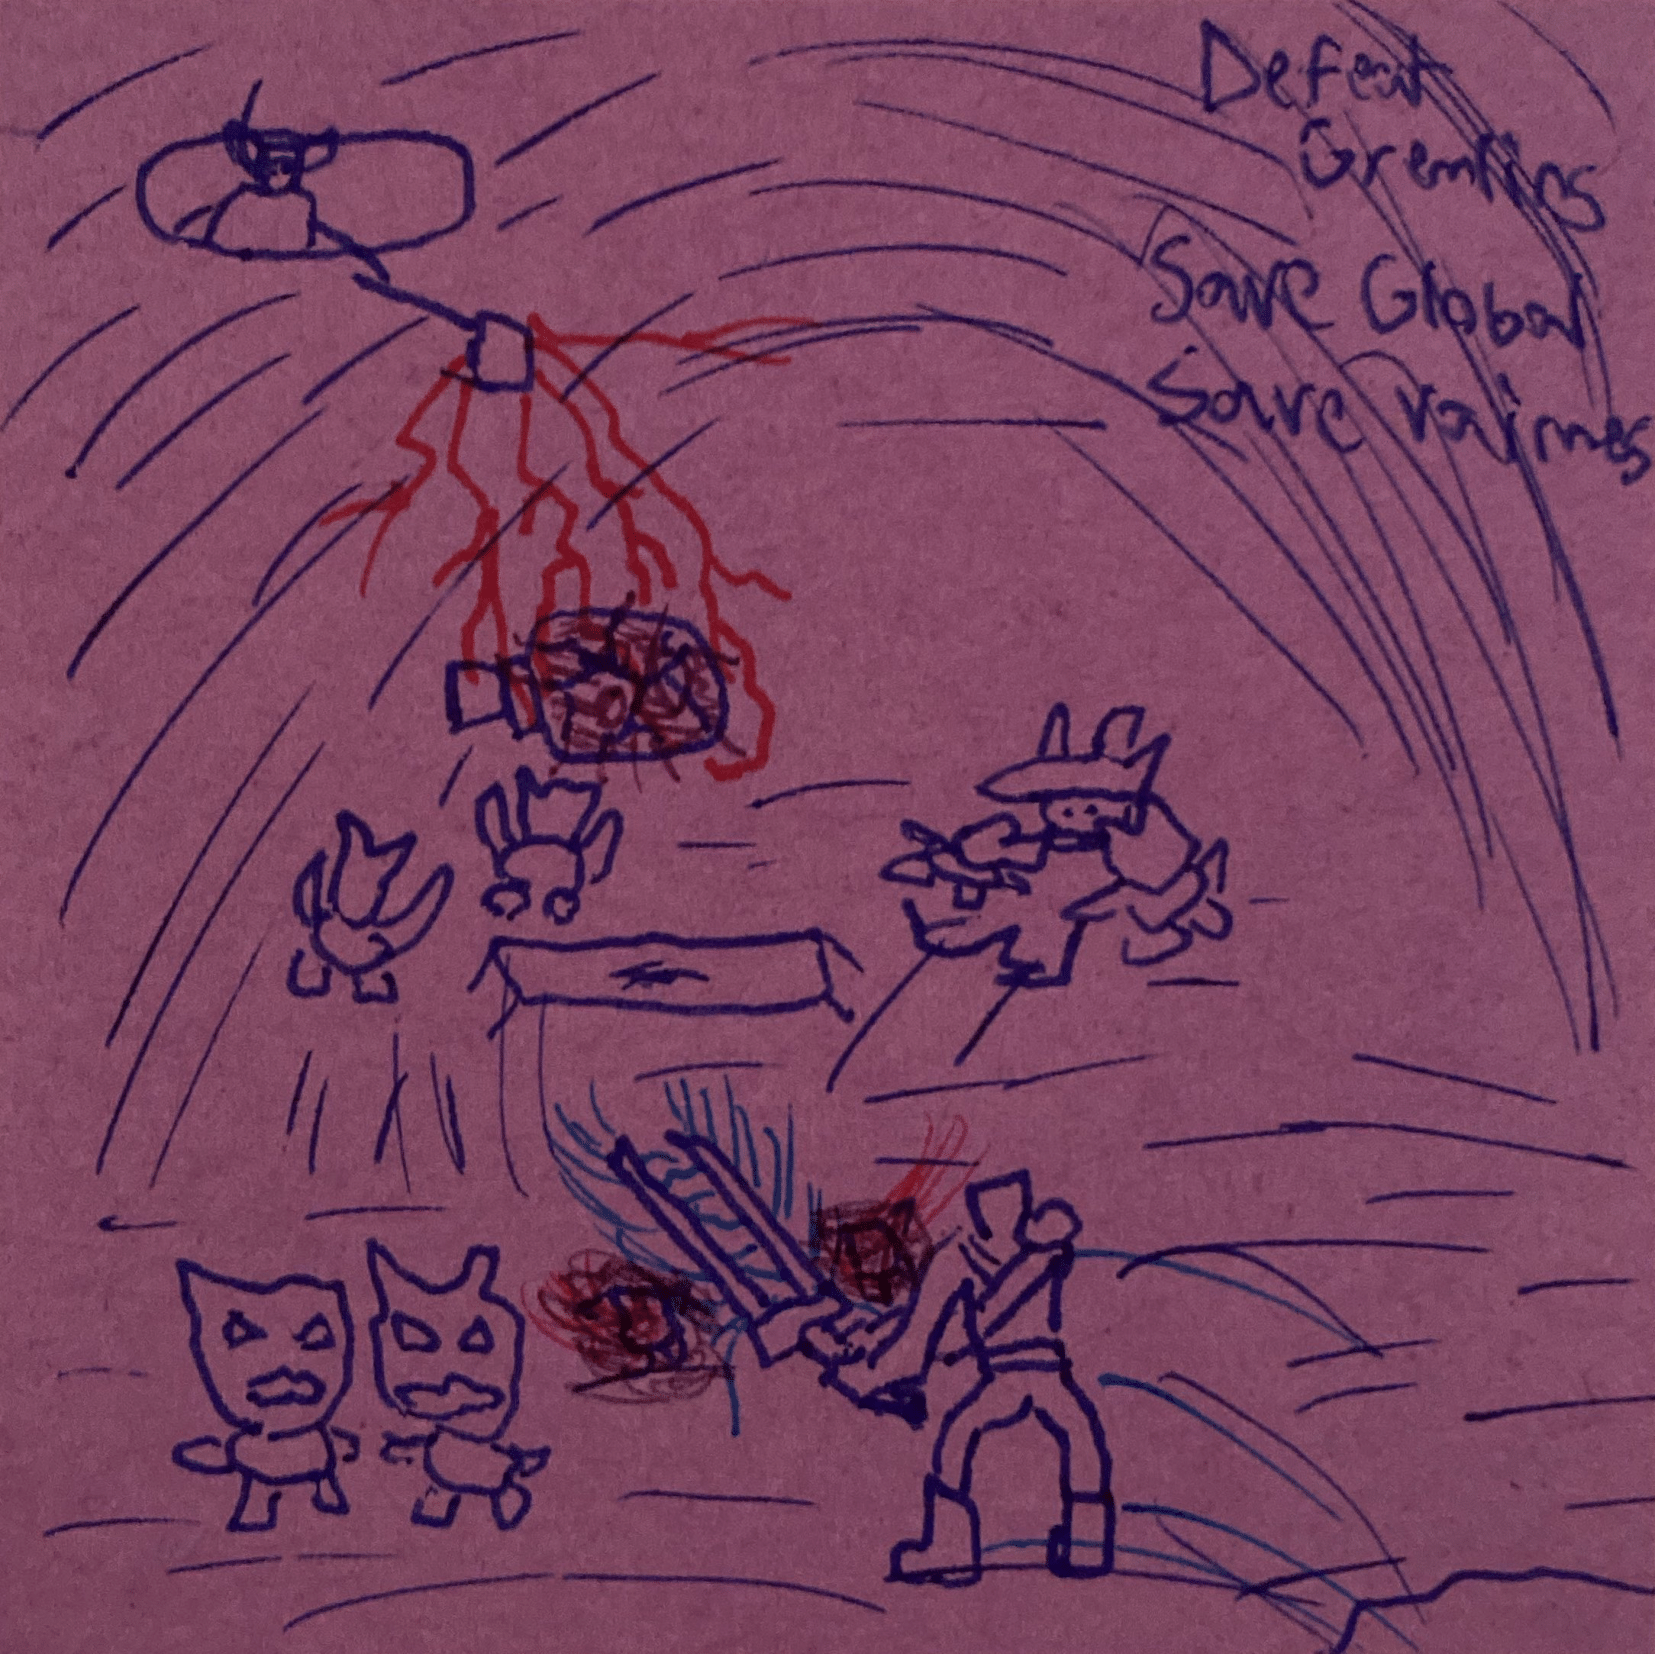 Defeat
Gremlins
Save Global
Save vaimes